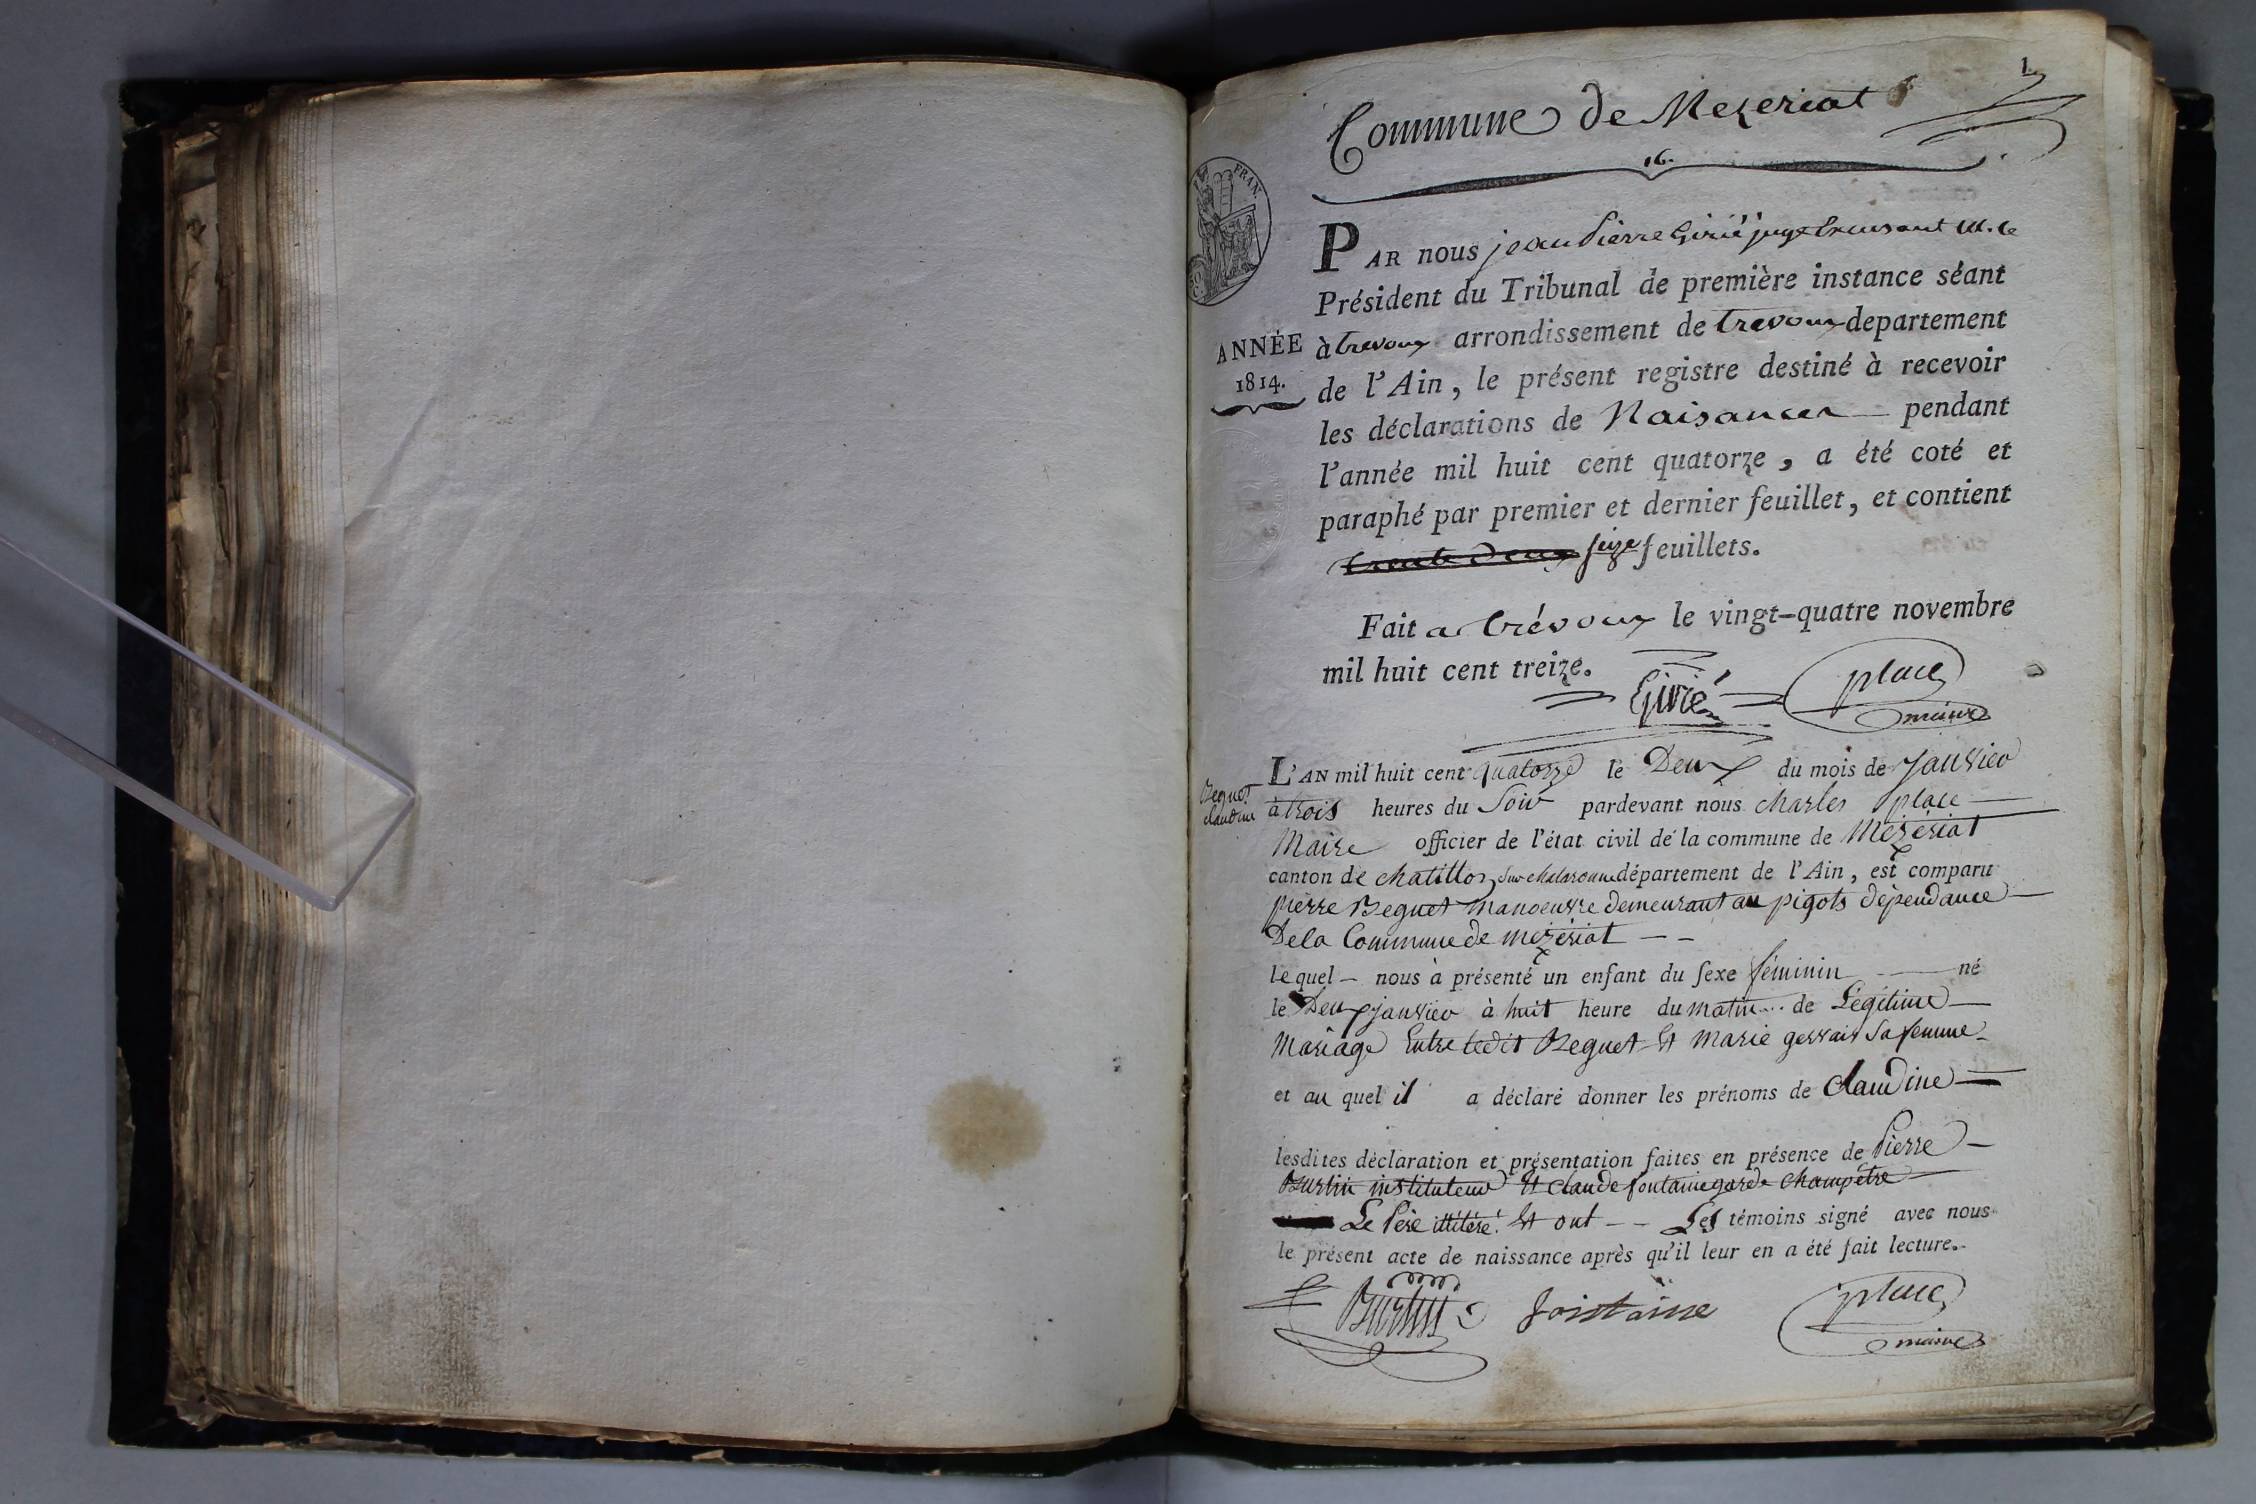 1.
Commune de Mezeriat
16.
FRAN.
PAR nous jean Pierre Girié juge faisant M. le
Président du Tribunal de première instance séant
ANNÉE
à trevoux arrondissement de trevoux departement
1814.
de l'Ain, le présent registre destiné à recevoir
les déclarations de Naisances pendant
l'année mil huit cent quatorze, a été coté et
paraphé par premier et dernier feuillet, et contient
trente deux seize feuillets.
Fait a trévoux le vingt-quatre novembre
mil huit cent treize.
Girié place
maire
L'AN mil huit cent quatorze le Deux du mois de janvier
Beguet
claudine
à trois heures du Soir pardevant nous charles place
Maire officier de l'état civil de la commune de Mézériat
canton de chatillon sur chalaronne département de l'Ain, est comparu
pierre Beguet manoeuvre demeurant au pigots dépendance
De la Commune de mezériat
le quel nous à présenté un enfant du sexe féminin né
le Deux janvier à huit heure du matin de Légitime
Mariage Entre ledit Beguet Et Marie gervais Sa femme
et au quel il a déclaré donner les prénoms de claudine
lesdites déclaration et présentation faites en présence de Pierre
Burtin instituteur Et claude fontaine garde champêtre
Le Père illitéré Et ont Les témoins signé avec nous
le présent acte de naissance après qu'il leur en a été fait lecture.
Burtin fontaine place
maire